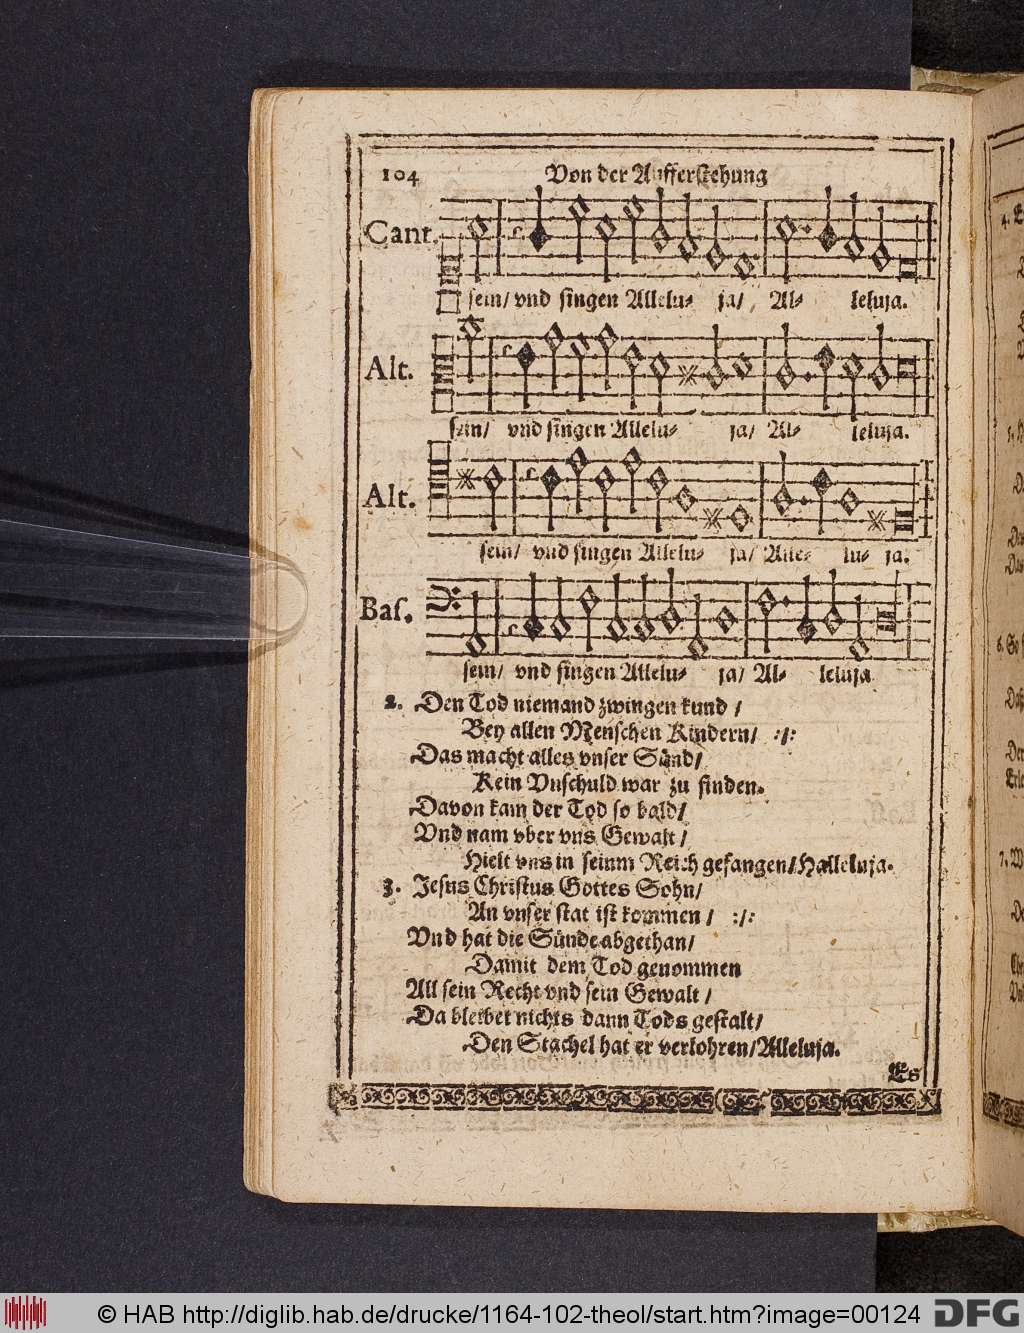 104 Von der Aufferstehung
Cant.
sein/ vnd singen Allelu- ja/ Al- leluja.
Alt.
sein/ vnd singen Allelu- ja/ Al- leluja.
Alt.
sein/ vnd singen Allelu- ja/ Alle- lu- ja.
Bas.
sein/ vnd singen Allelu- ja/ Al- leluja
2. Den Tod niemand zwingen kund /
Bey allen Menschen Kindern/ :/:
Das macht alles vnser Sünd/
Kein Vnschuld war zu finden.
Davon kam der Tod so bald/
Vnd nam vber vns Gewalt /
Hielt vns in seinm Reich gefangen/Halleluja.
3. Jesus Christus Gottes Sohn/
An vnser stat ist kommen / :/:
Vnd hat die Sünde abgethan/
Damit dem Tod genommen
All sein Recht vnd sein Gewalt /
Da bleibet nichts dann Tods gestalt/
Den Stachel hat er verlohren/Alleluja.
Es
© HAB http://diglib.hab.de/drucke/1164-102-theol/start.htm?image=00124 DFG